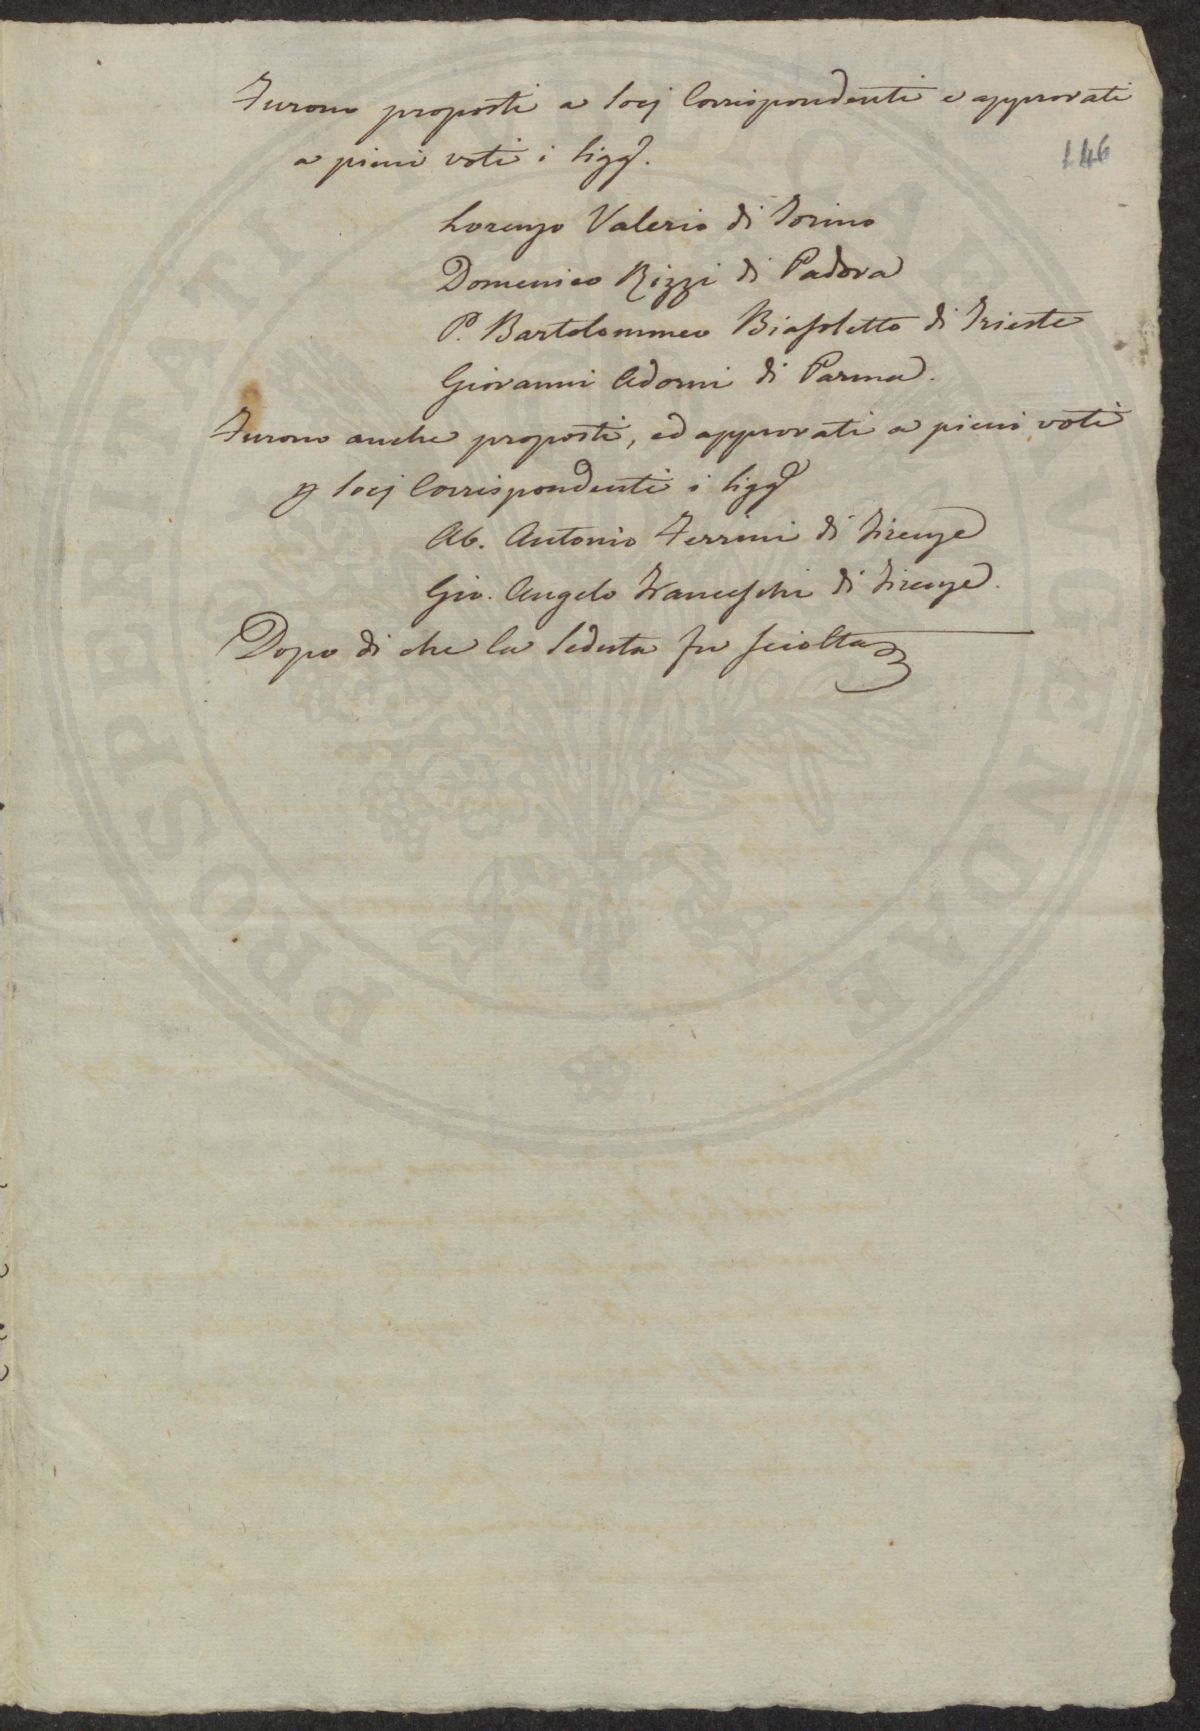 Furono proposti a Socj Corrispondenti e approvati
146
a pieni voti i Sigg.
Lorenzo Valerio di Torino
Domenico Rizzi di Padova
P. Bartolommeo Biasoletto di Trieste
Giovanni Adorni di Parma.
Furono anche proposti, ed approvati a pieni voti
p Socj Corrispondenti i Sigg
Ab. Antonio Ferrini di Firenze
Gio. Angelo Franceschi di Firenze.
Dopo di che la Seduta fu sciolta
PROSPERITATI PUBLICAE AUGENDAE